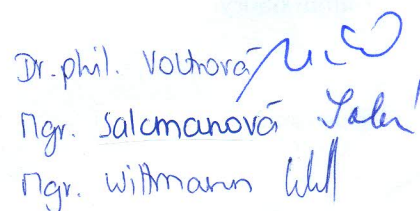 Dr. phil. Voltrová
Mgr. Salcmanová
Mgr. Wittmann